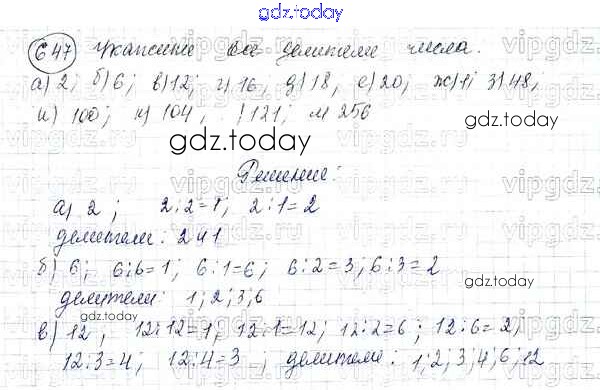 gdz.today
647 Укажите все делители числа.
а) 2; б) 6; в) 12; г) 16, д) 18, е) 20; ж) 1; з) 48,
и) 100; к) 104, л) 121; м 256
gdz.today
gdz.today
Решение:
а) 2; 2:2=1; 2:1=2
делители: 2 и 1
б) 6; 6:6=1; 6:1=6; 6:2=3; 6:3=2
делители: 1; 2; 3; 6
в) 12, 12:12=1, 12:1=12; 12:2=6; 12:6=2;
12:3=4; 12:4=3; делители: 1; 2; 3; 4; 6; 12
gdz.today
gdz.today